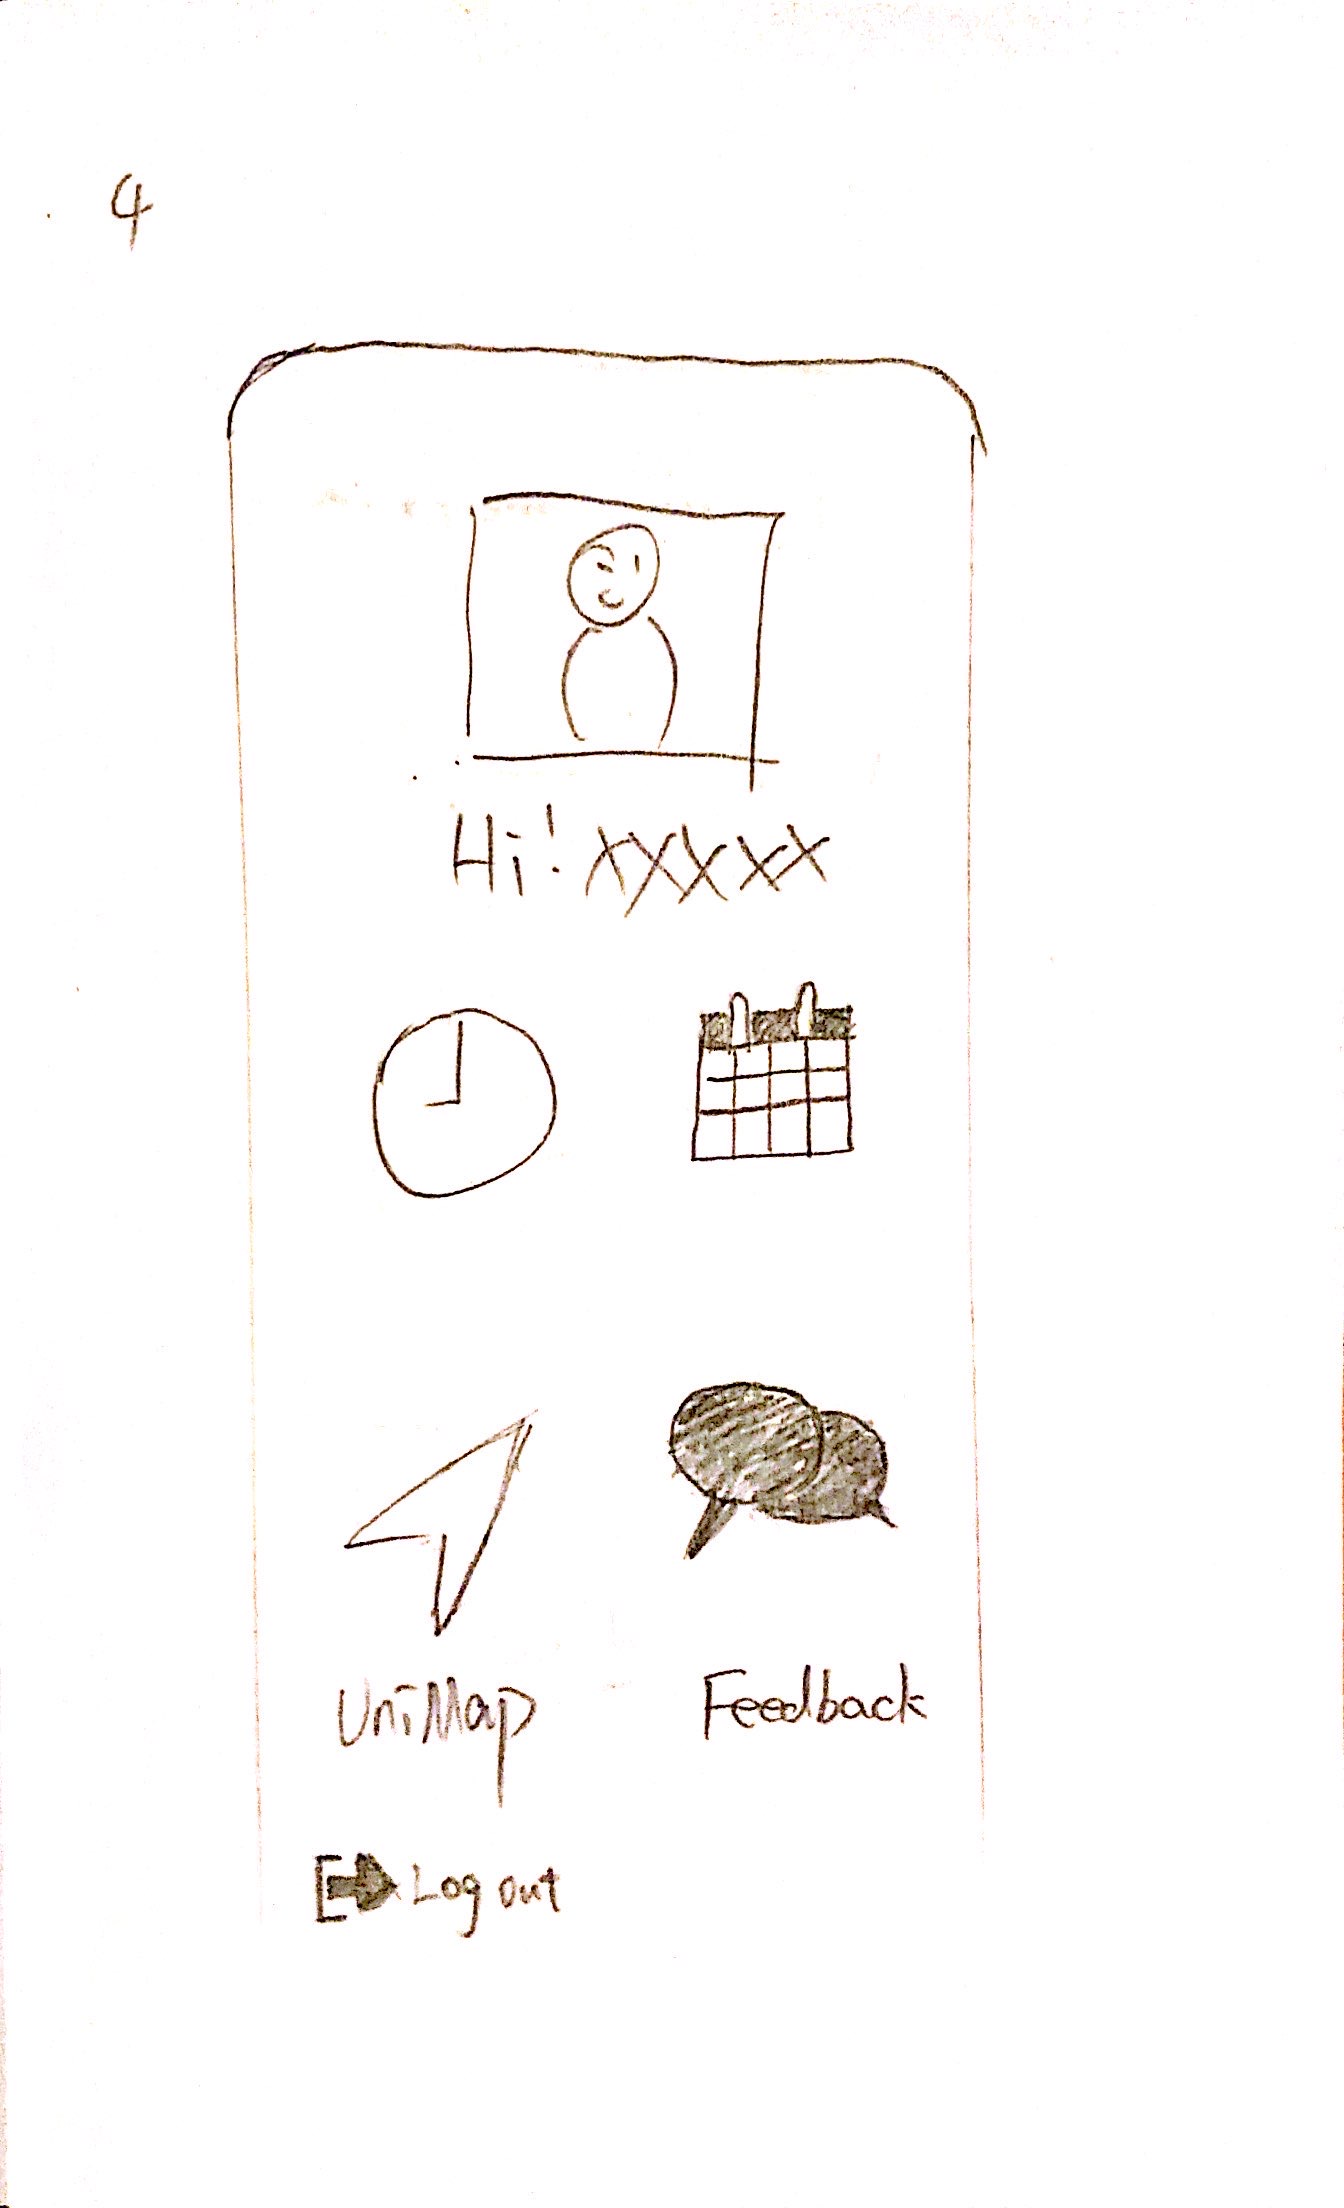 4
Hi! XXXXX
UniMap Feedback
Log out